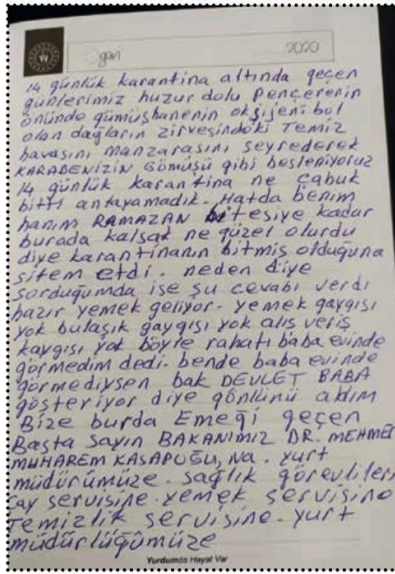 2020
14 günlük karantina altında geçen
günlerimiz huzur dolu Pençerenin
önünde gümüşhanenin oksijeni bol
olan dağların zirvesindeki Temiz
havasını manzarasını seyrederek
KARADENİZİN Gömüşü gibi besleniyoruz
14 günlük karantina ne çabuk
bitti anlayamadık. Hatda benim
hanım RAMAZAN bitesiye kadar
burada kalsak ne güzel olurdu
diye karantinanın bitmiş olduğuna
sitem etdi. neden diye
sorduğumda ise şu cevabı verdi
hazır yemek geliyor. yemek gaygısı
yok bulaşık gaygısı yok alış veriş
kaygısı yok böyle rahatı baba evinde
görmedim dedi. bende baba evinde
görmediysen bak DEVLET BABA
gösteriyor diye gönlünü aldım
Bize burda Emeği geçen
Başta Sayın BAKANIMIZ DR. MEHMET
MUHAREM KASAPOĞU,NA. yurt
müdürümüze. sağlık görevlileri
çay servisine. yemek servisine
Temizlik servisine. yurt
müdürlüğümüze
Yurdumda Hayat Var